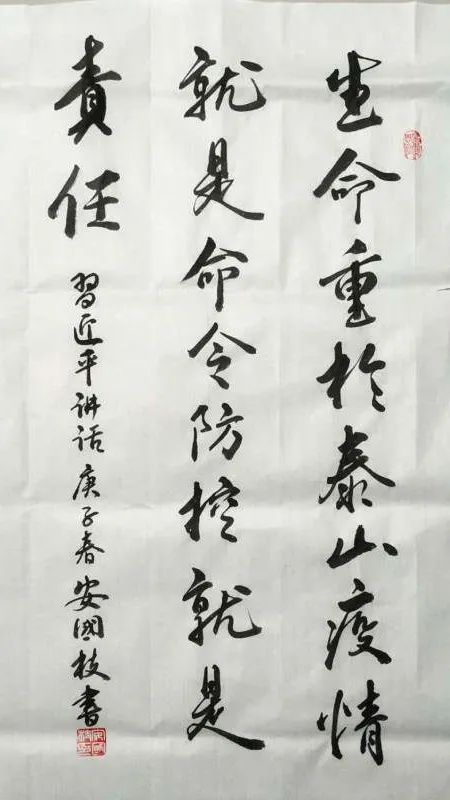 生命重於泰山疫情
就是命令防控就是
責任
習近平讲话庚子春安國枝書